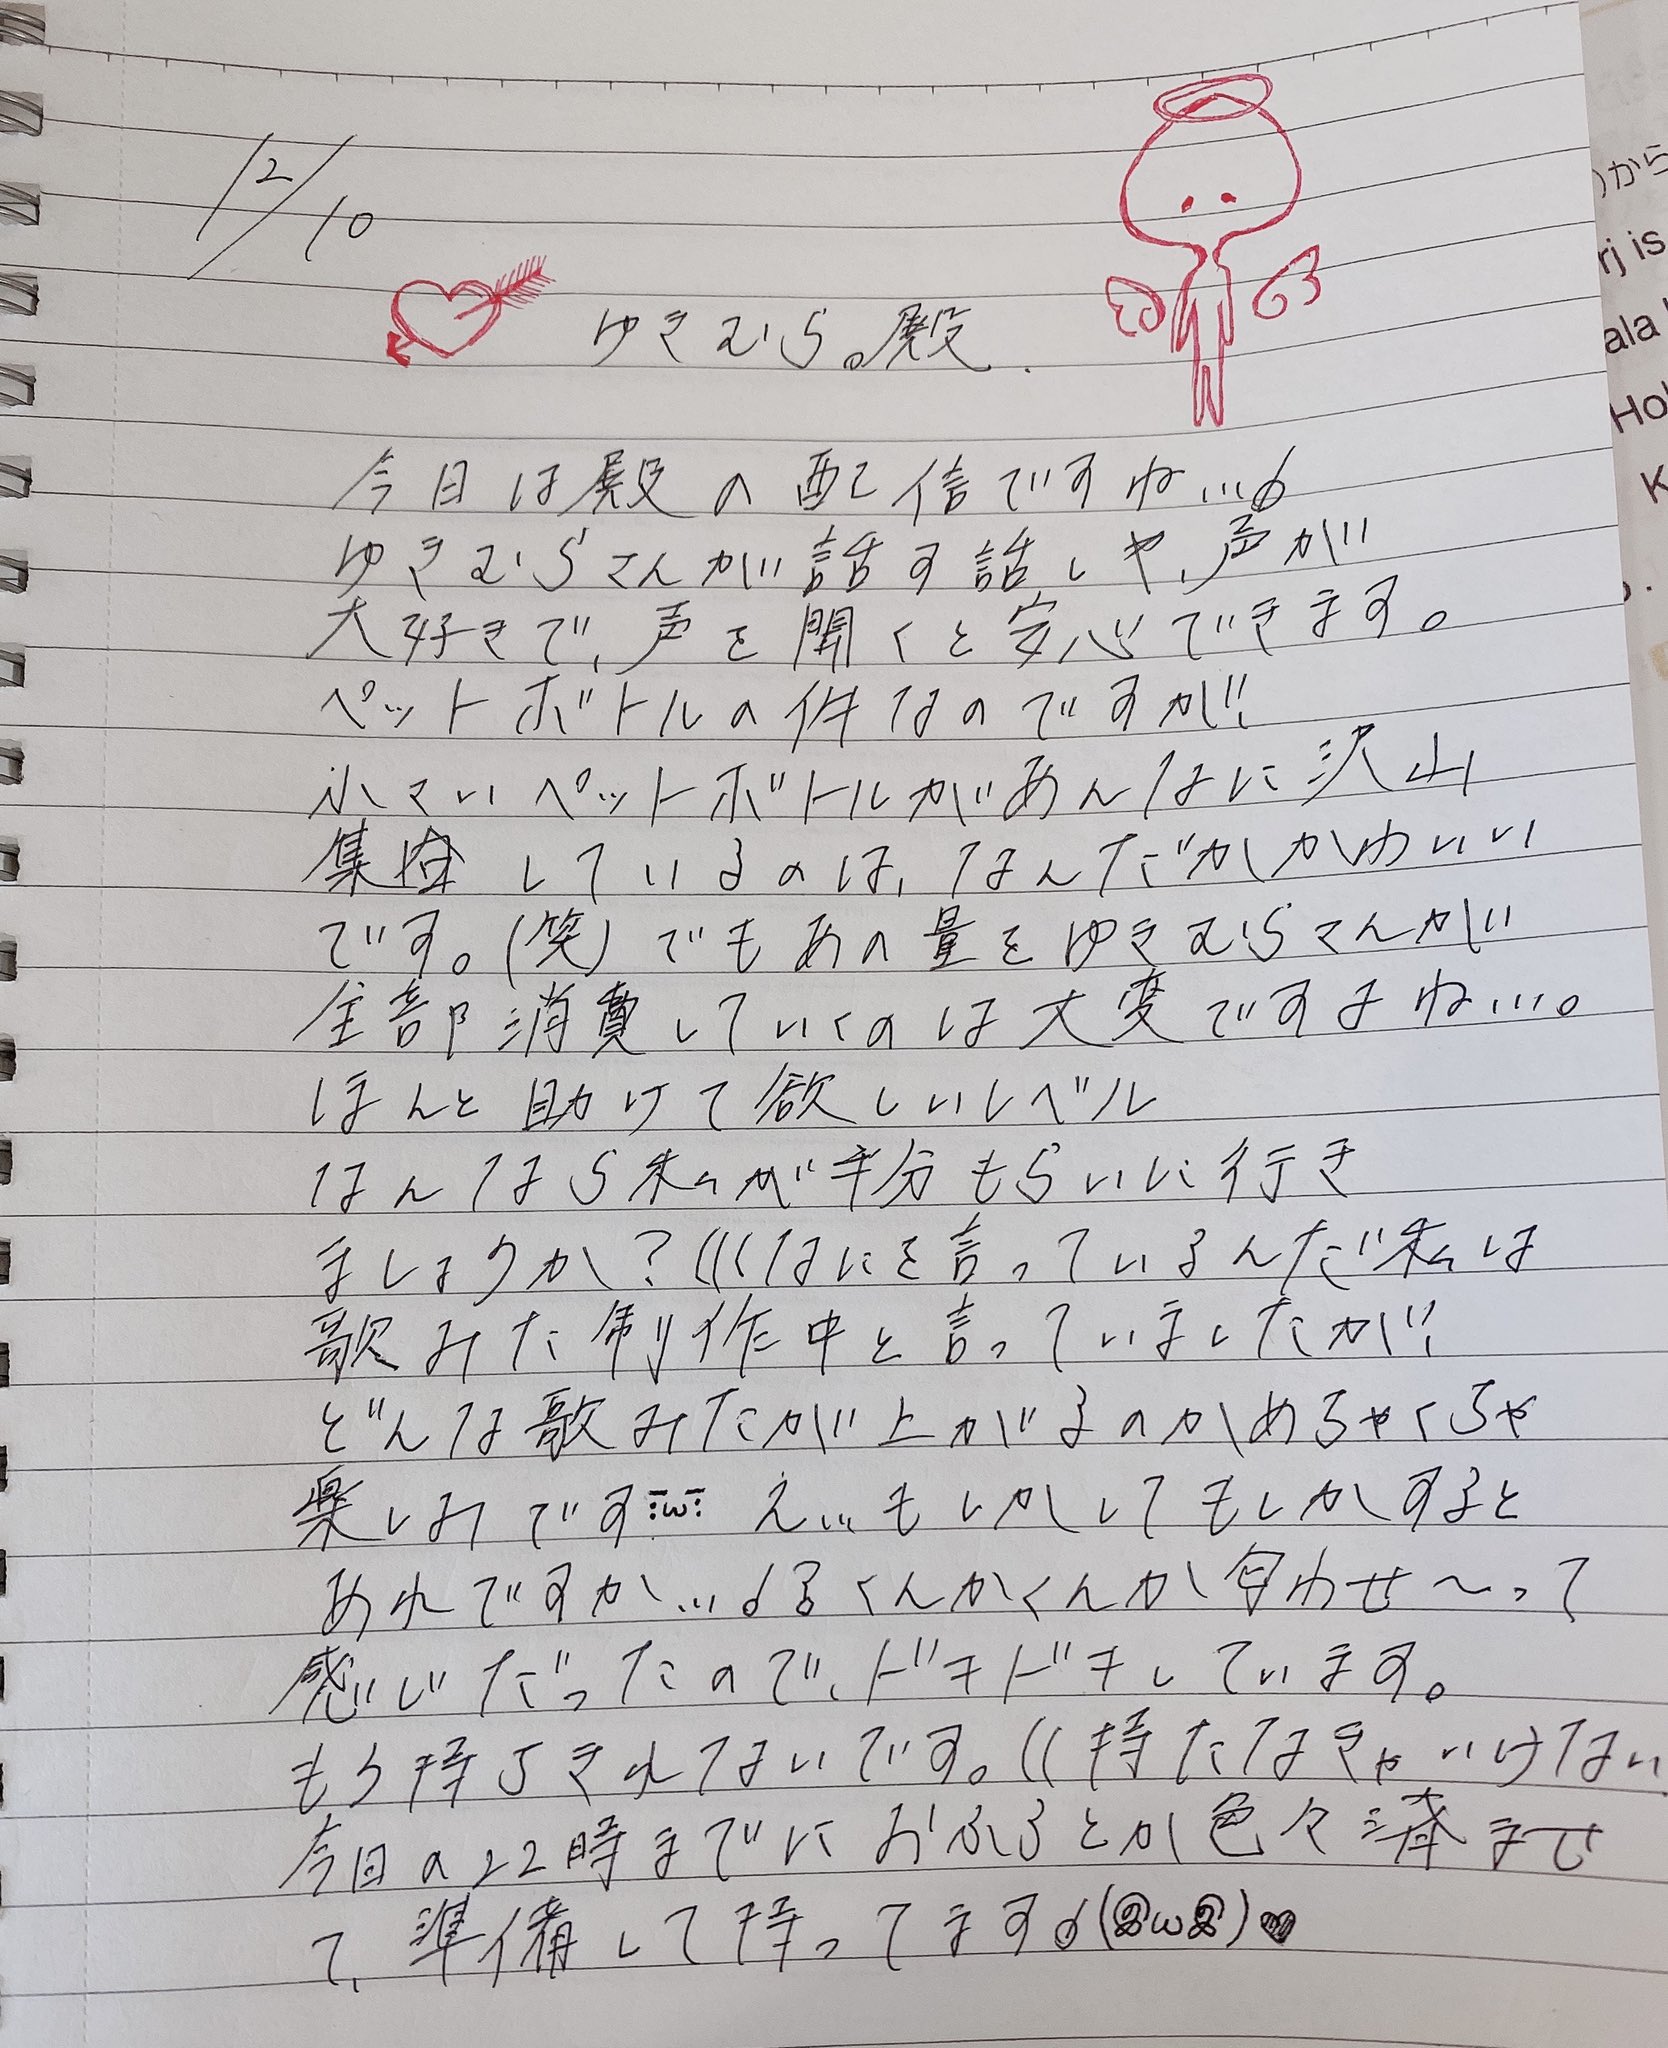 12/10
ゆきむら。殿
今日は殿の配信ですね…໒
ゆきむらさんが話す話しや、声が
大好きで、声を聞くと安心できます。
ペットボトルの件なのですが、
小さいペットボトルがあんなに沢山
集団しているのは、なんだかかわいい
です。(笑)でもあの量をゆきむらさんが
全部消費していくのは大変ですよね…。
ほんと助けて欲しいレベル
なんなら私が半分もらいに行き
ましょうか?(((なにを言っているんだ私は
歌みた制作中と言っていましたが、
どんな歌みたが上がるのかめちゃくちゃ
楽しみです え…もしかしてもしかすると
あれですか…るくんかくんか匂わせ〜って
感じだったので、ドキドキしています。
もう待ちきれないです。((待たなきゃいけない
今日の22時までにおふろとか色々済ませ
て、準備して待ってます
)から
rj is
ala
Hol
K